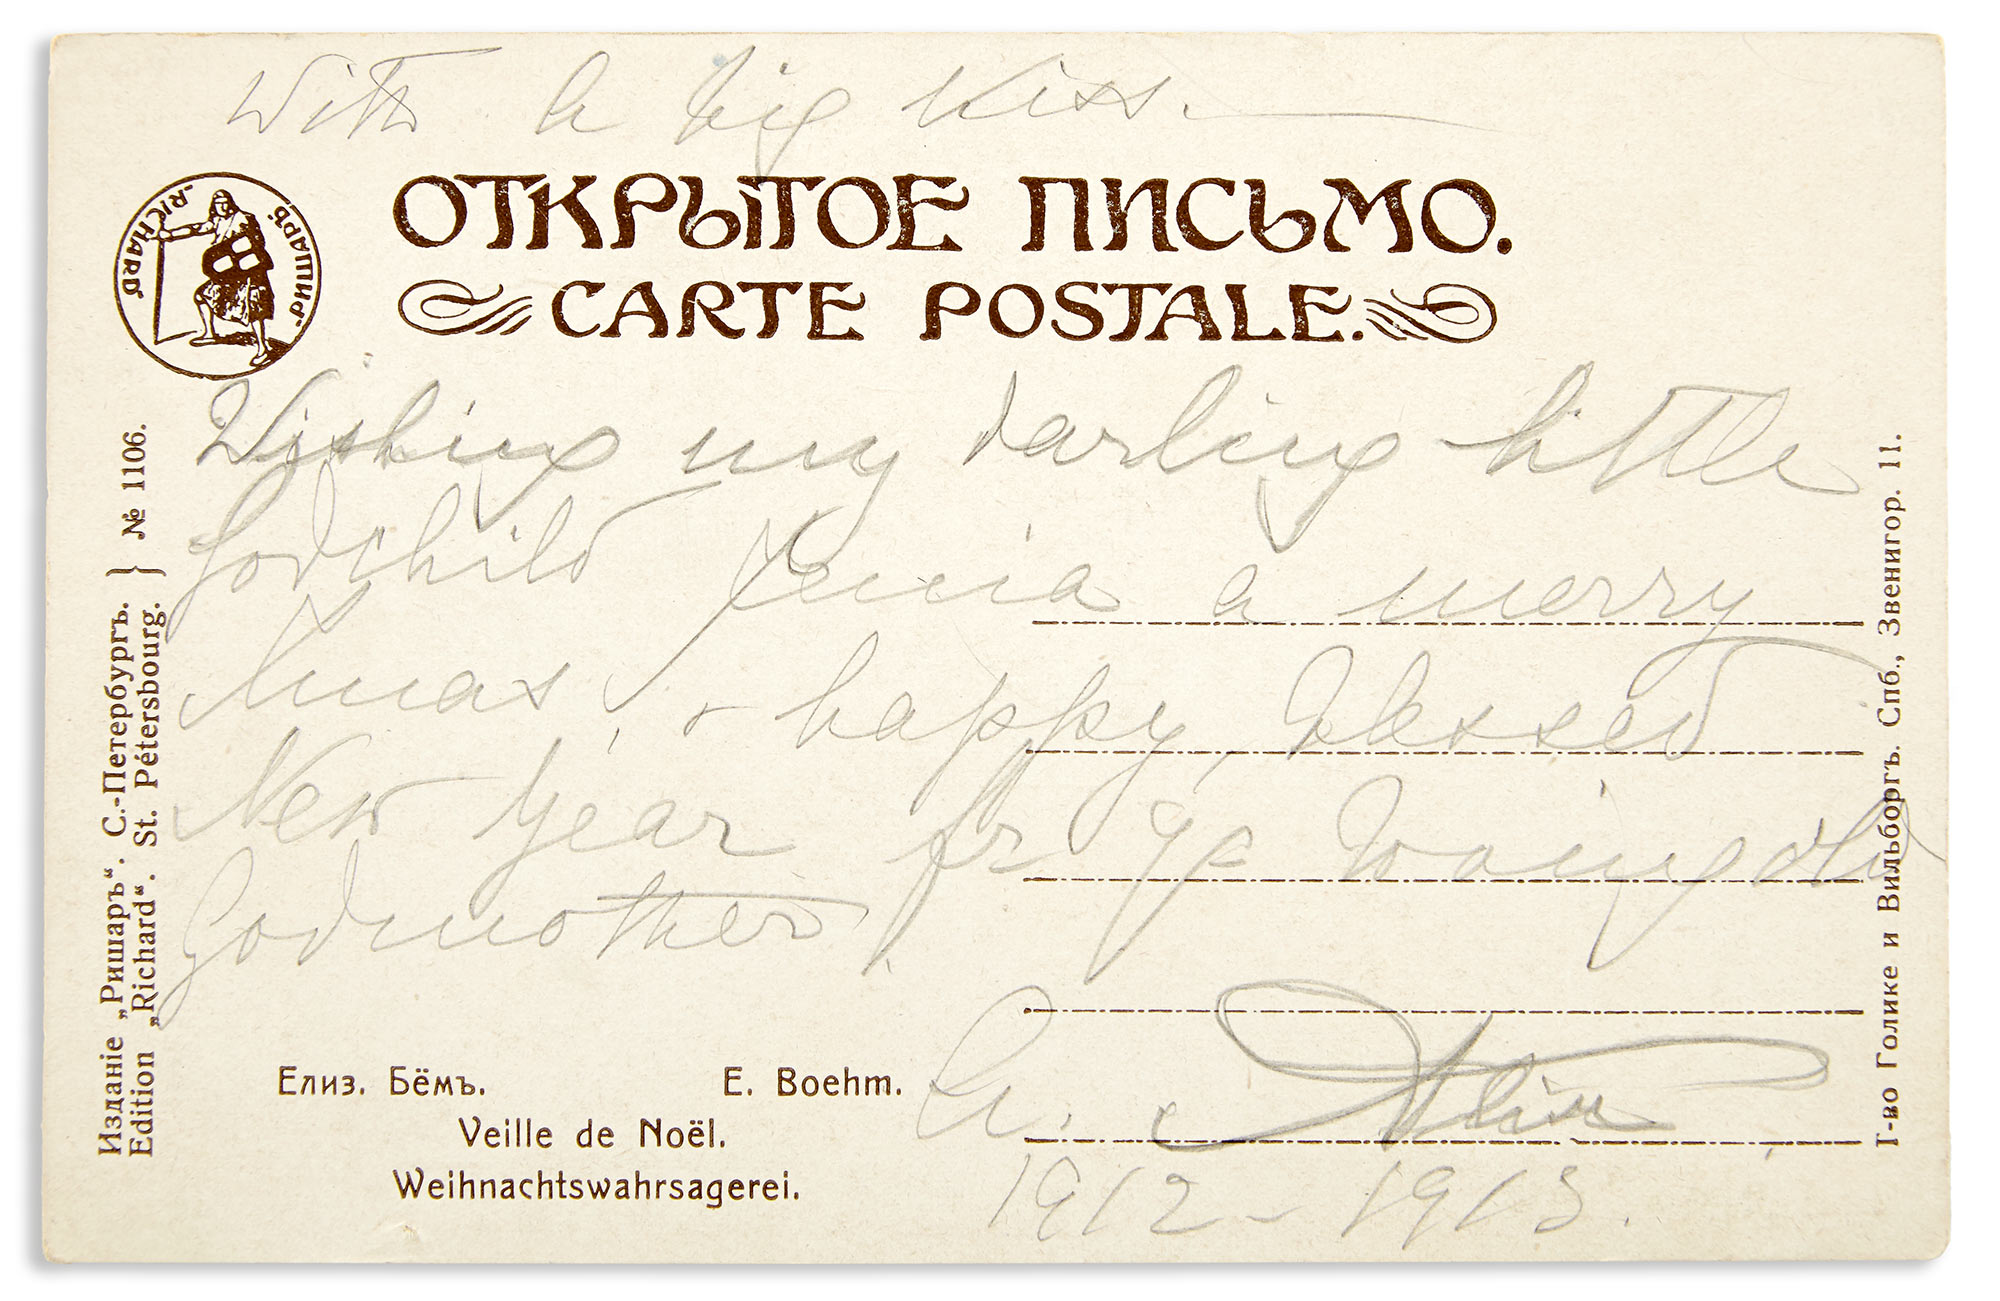 With a big kiss.
„RICHARD" „РИШАРЪ"
ОТКРЫТОЕ ПИСЬМО.
CARTE POSTALE.
Wishing my darling little
Godchild Xenia a merry
Xmas, & happy, blessed
New Year fr yr loving old
Godmother
A. Alix
1912 - 1913.
Елиз. Бёмъ. E. Boehm.
Veille de Noël.
Weihnachtswahrsagerei.
Изданіе „Ришаръ“. С.-Петербургъ.
Edition „Richard“. St. Pétersbourg.
№ 1106.
Т-во Голике и Вильборгъ. Спб., Звенигор. 11.